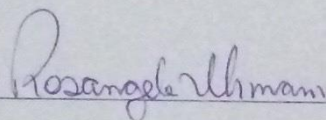 Rosangela Uhmann